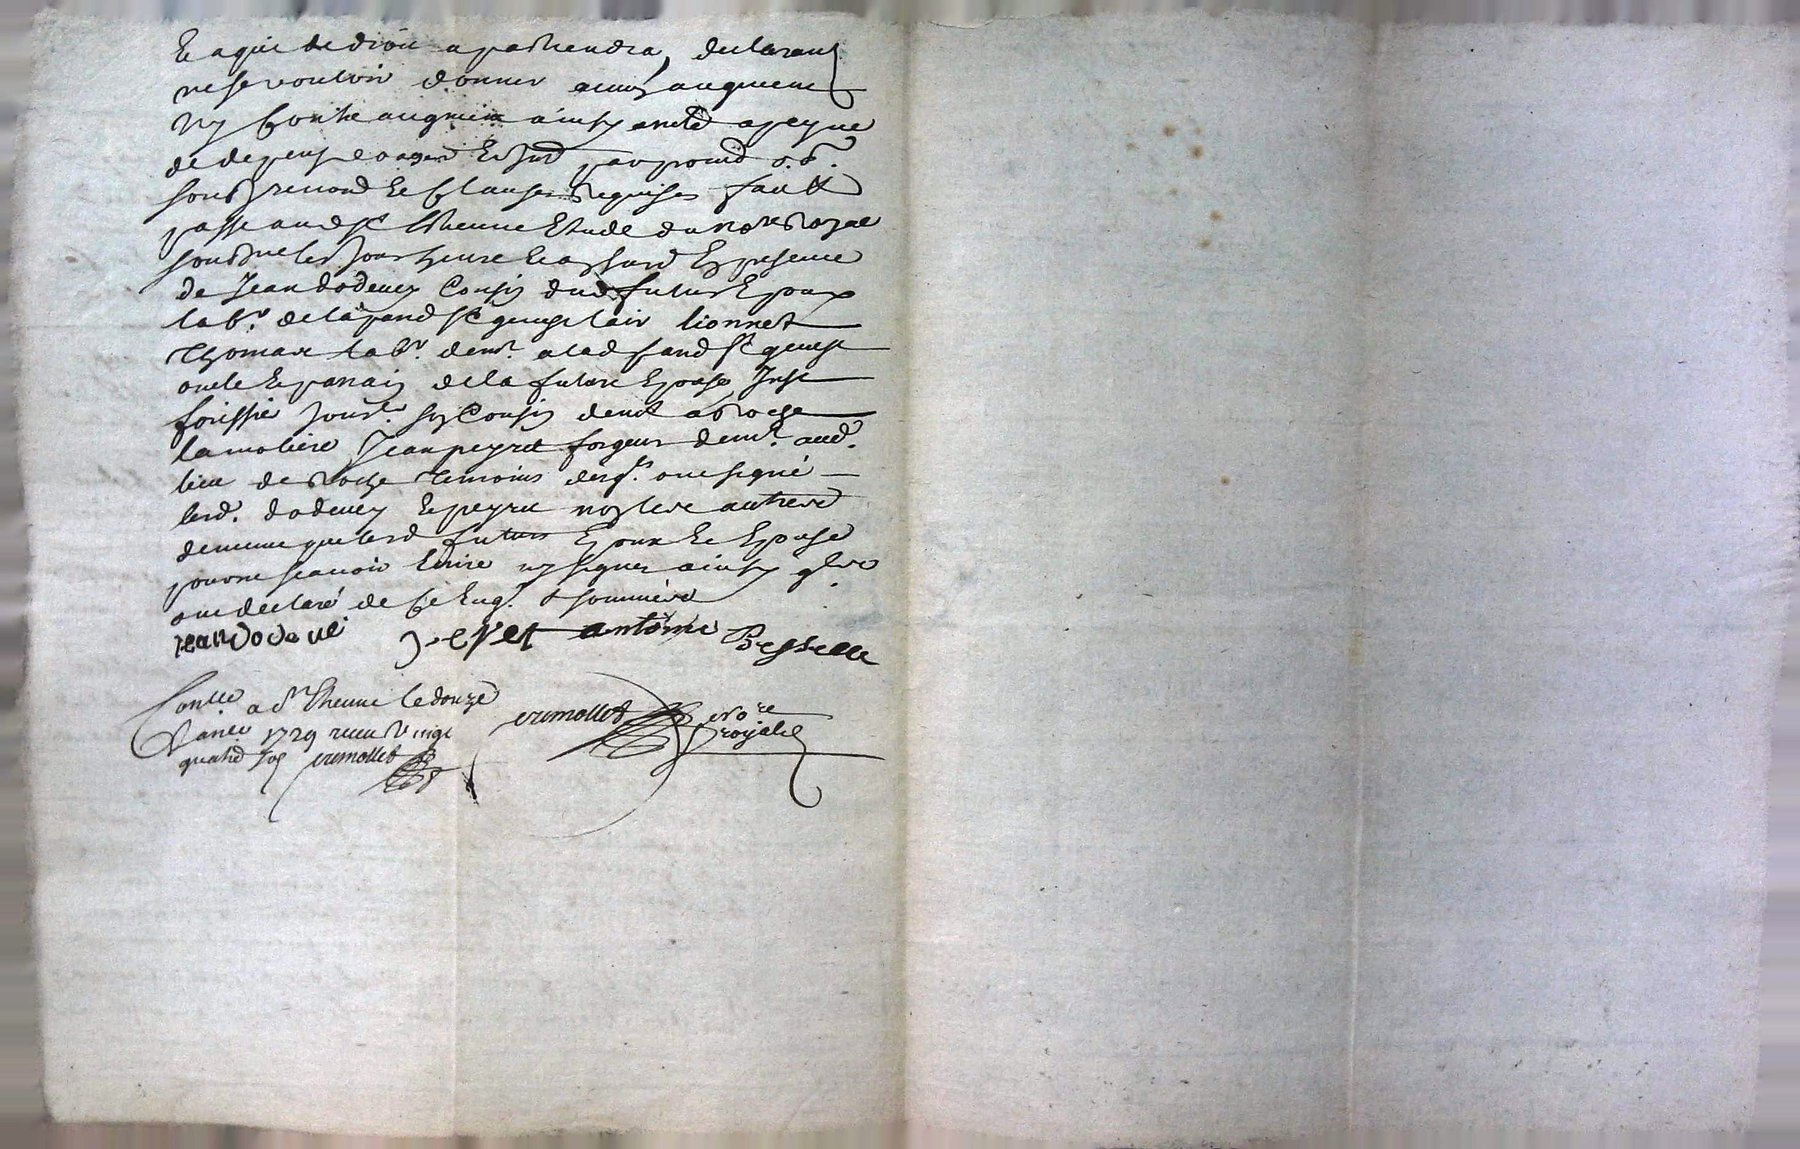 Et a qui de droit apartiendra, declarant
ne se vouloir donner aucun augment
ny contre augment ainsy arreté a peyne
de depens
sous renond et clauses requises fait et
passé aud st Etienne Etude du no.re royal
sousne les jour heure En presence
de Jean dodevey Cousin dud futur Epoux
lab.r de la fand st genest lionnet
Thomas lab.r dem.t a lad fand st genest
oncle Et parain de la future Epouse Just
forissié jour.r son Cousin dem.t a roche
lamoliere Jean peyret forgeur dem.t aud.
lieu de roche Temoins ont signé
lesd. dodevey Et peyret non les autres
de meme que lesd futurs Epoux Et Epouse
pour ne scavoir Ecrire ny signer ainsy
ont declaré de ce Enq. & sommés
jean dodeve peyret antoine
Con.lle a st Etienne le douze
Janier 1729 receu vingt
quatre sols crimollet
crimollet no.re
royal